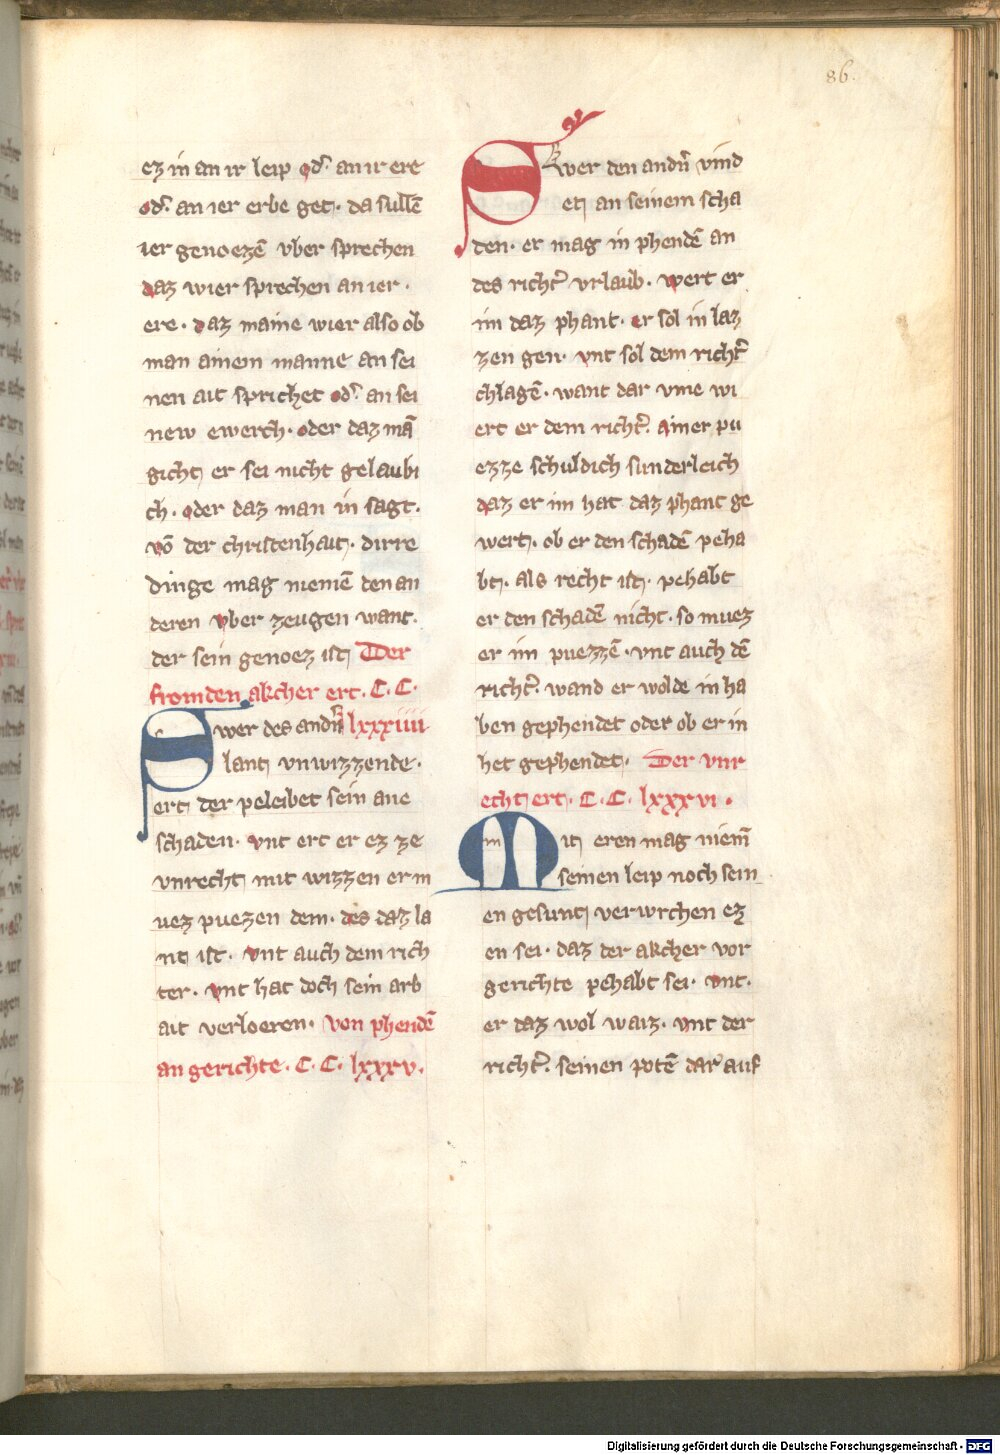 86.
ez in an ir leip od͛ an ir ere
od͛ an ier erbe get. da sullē
ier genoezē vber sprechen
daz wier sprechen an ier .
ere . daz maine wier also ob
man ainem manne an sei
nen ait sprichet od͛ an sei
new ewerch . oder daz mā
gicht er sei nicht gelaubi
ch . oder daz man in sagt .
vō der christenhait. dirre
dinge mag niemē den an
deren vber zeugen want .
der sein genoez ist Der
fromden akcher ert . C . C .
Swer des andn͛ lxxxiiii
lant vnwizzende .
ert der peleibet sein ane
schaden . vnt ert er ez ze
vnrecht mit wizzen er m
uez puezen dem . des daz la
nt ist . vnt auch dem rich
ter . vnt hat doch sein arb
ait verloeren . von phendē
an gerichte . C . C . lxxxv .
Swer den andn͛ vind
et an seinem scha
den . er mag in phendē an
des richt͛ vrlaub . wert er
im daz phant . er sol in laz
zen gen . vnt sol dem richt͛
chlagē . want dar vme wi
ert er dem richt͛ . ainer pu
ezze schuldich sunderleich
daz er im hat daz phant ge
wert . ob er den schadē peha
bt . als recht ist . pehabt
er den schadē nicht . so muez
er im puezzē . vnt auch dē
richt͛ . wand er wolde in ha
ben gephendet oder ob er in
het gephendet . Der vnr
echt ert . C . C . lxxxvi .
Mit eren mag niem̄
seinen leip noch sein
en gesunt verwrchen ez
en sei . daz der akcher vor
gerichte pehabt sei . vnt .
er daz wol waiz . vnt der
richt͛ . seinen potē dar auf
Digitalisierung gefördert durch die Deutsche Forschungsgemeinschaft - DFG